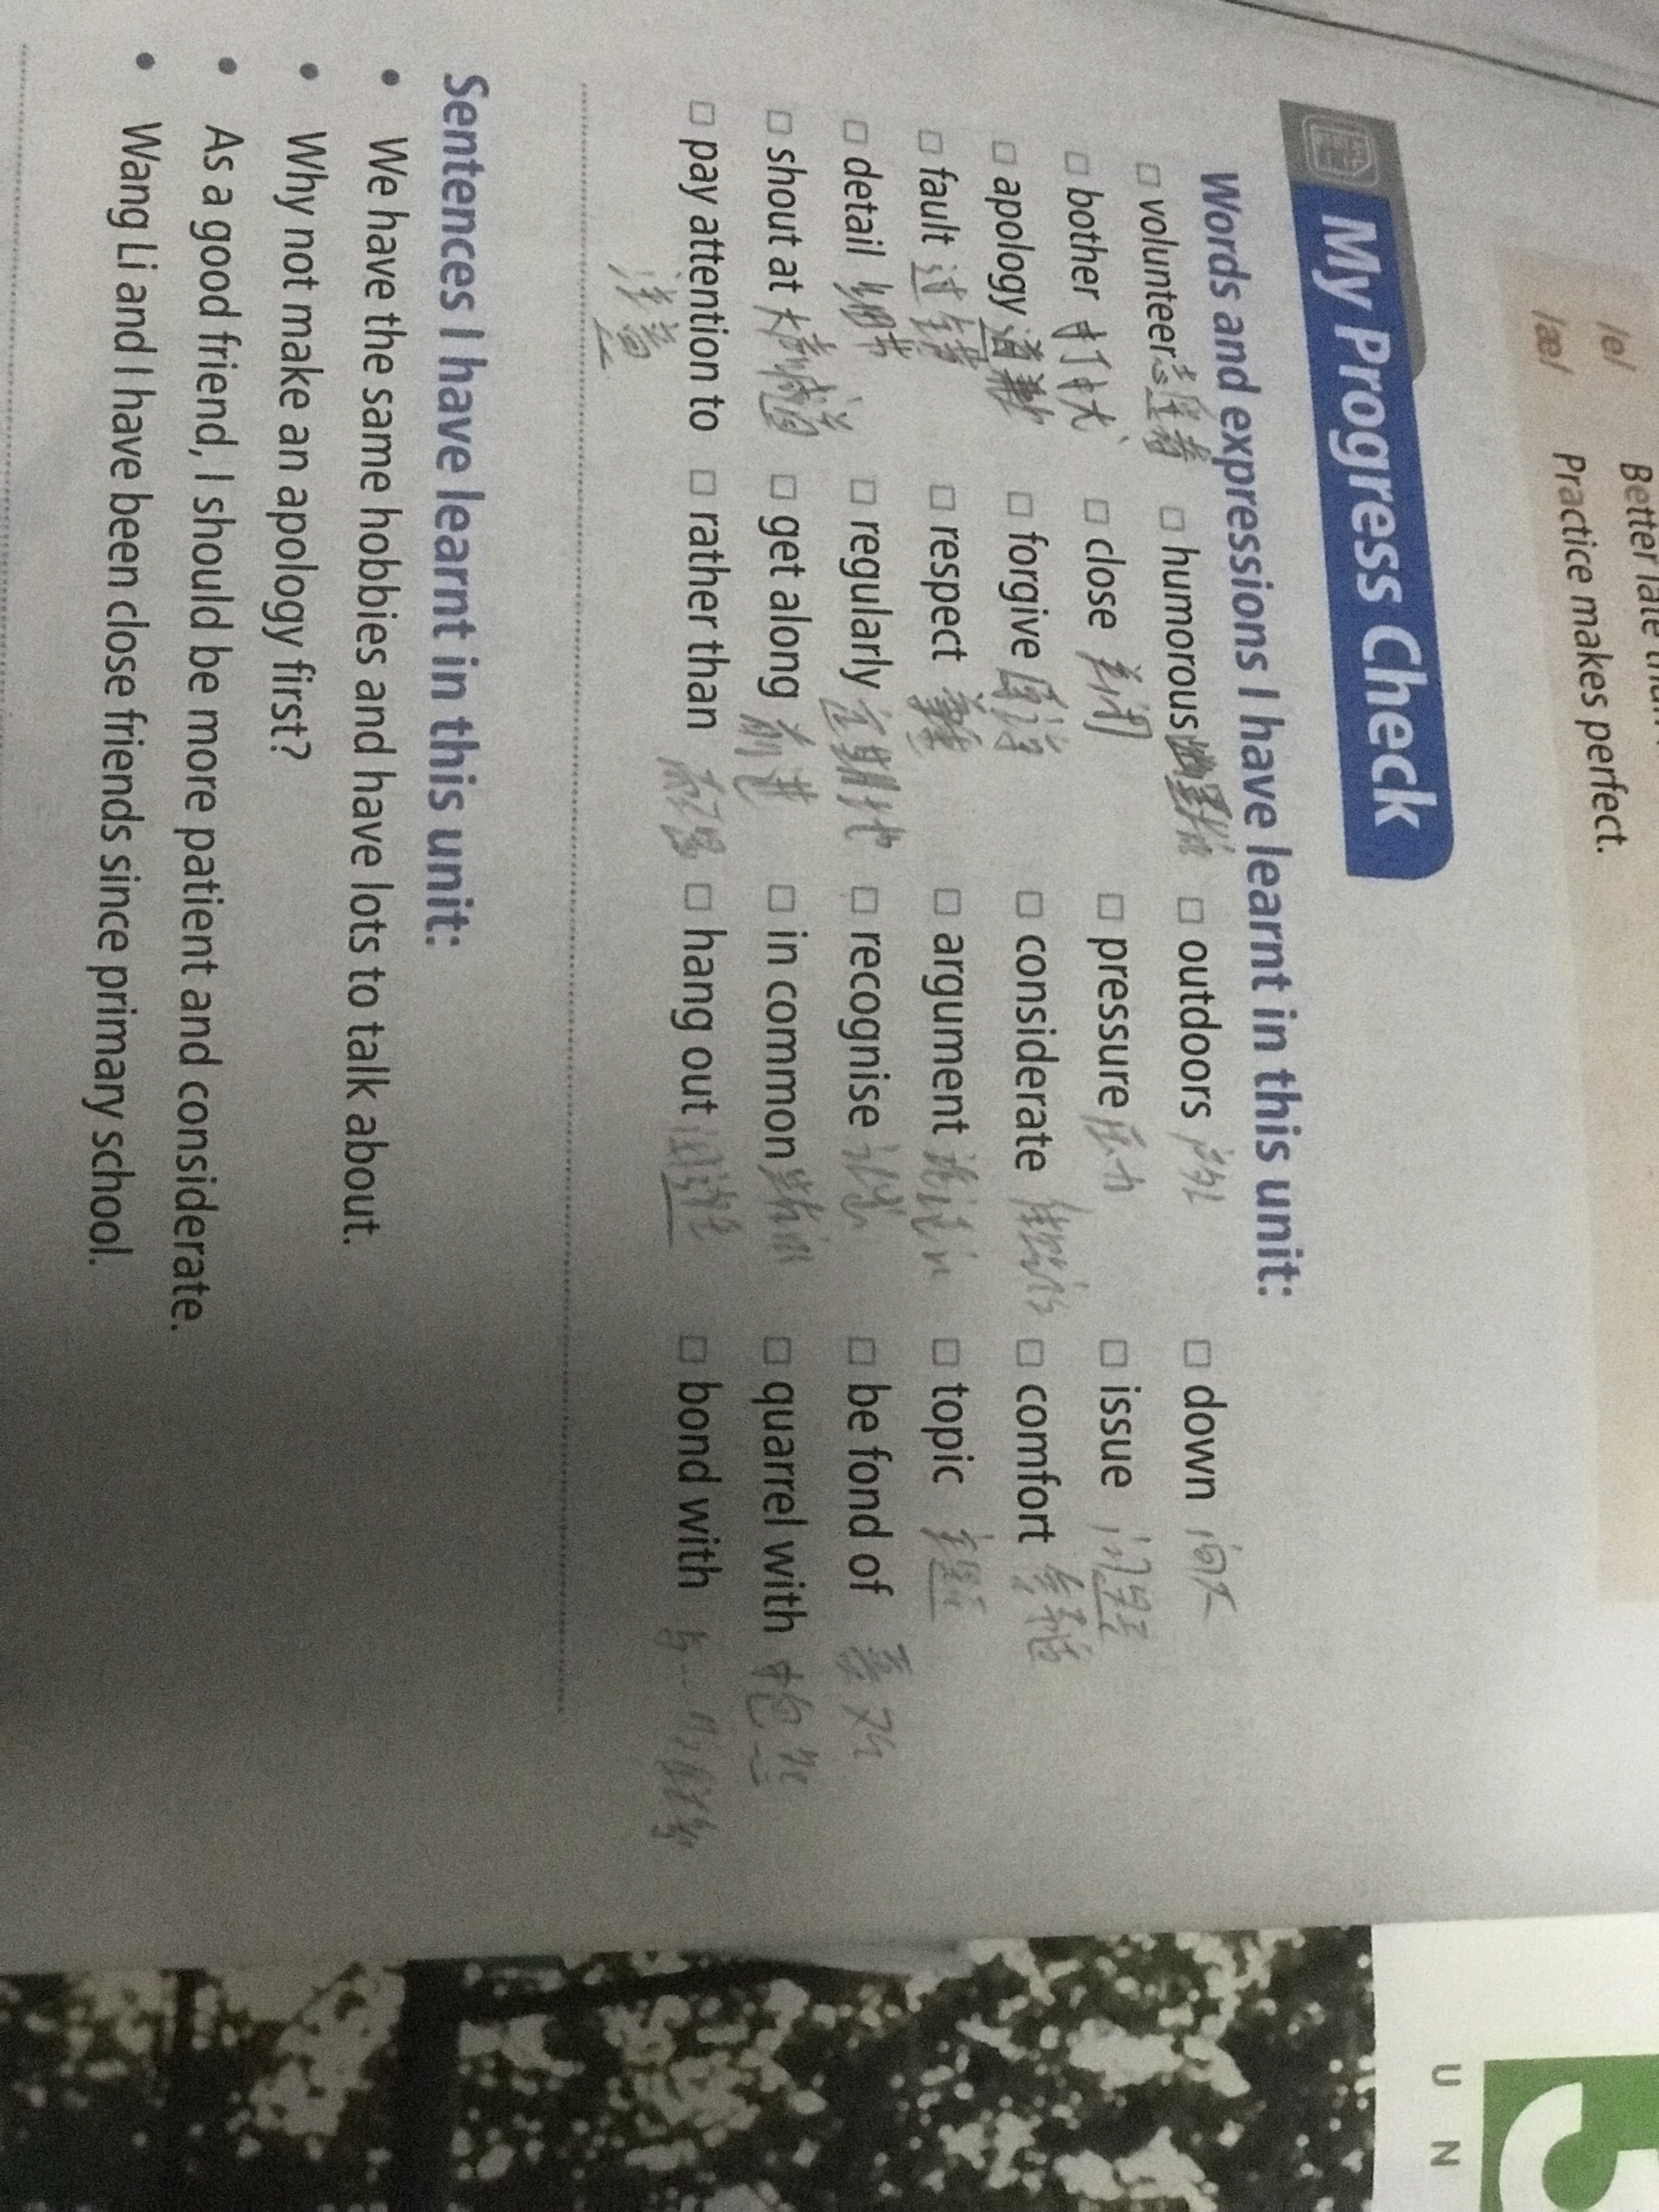 /e/ Better late
/æ/ Practice makes perfect.
My Progress Check
Words and expressions I have learnt in this unit:
□ volunteer □ humorous □ outdoors □ down 向下
□ bother 打扰 □ close 关闭 □ pressure 压力 □ issue 问题
□ apology 道歉 □ forgive 原谅 □ considerate □ comfort
□ fault 过错 □ respect □ argument □ topic
□ detail 细节 □ regularly 定期地 □ recognise 认出 □ be fond of 喜欢
□ shout at 大声喊道 □ get along 前进 □ in common □ quarrel with 抱怨
□ pay attention to □ rather than 而不是 □ hang out □ bond with
注意
Sentences I have learnt in this unit:
• We have the same hobbies and have lots to talk about.
• Why not make an apology first?
• As a good friend, I should be more patient and considerate.
• Wang Li and I have been close friends since primary school.
U N
5